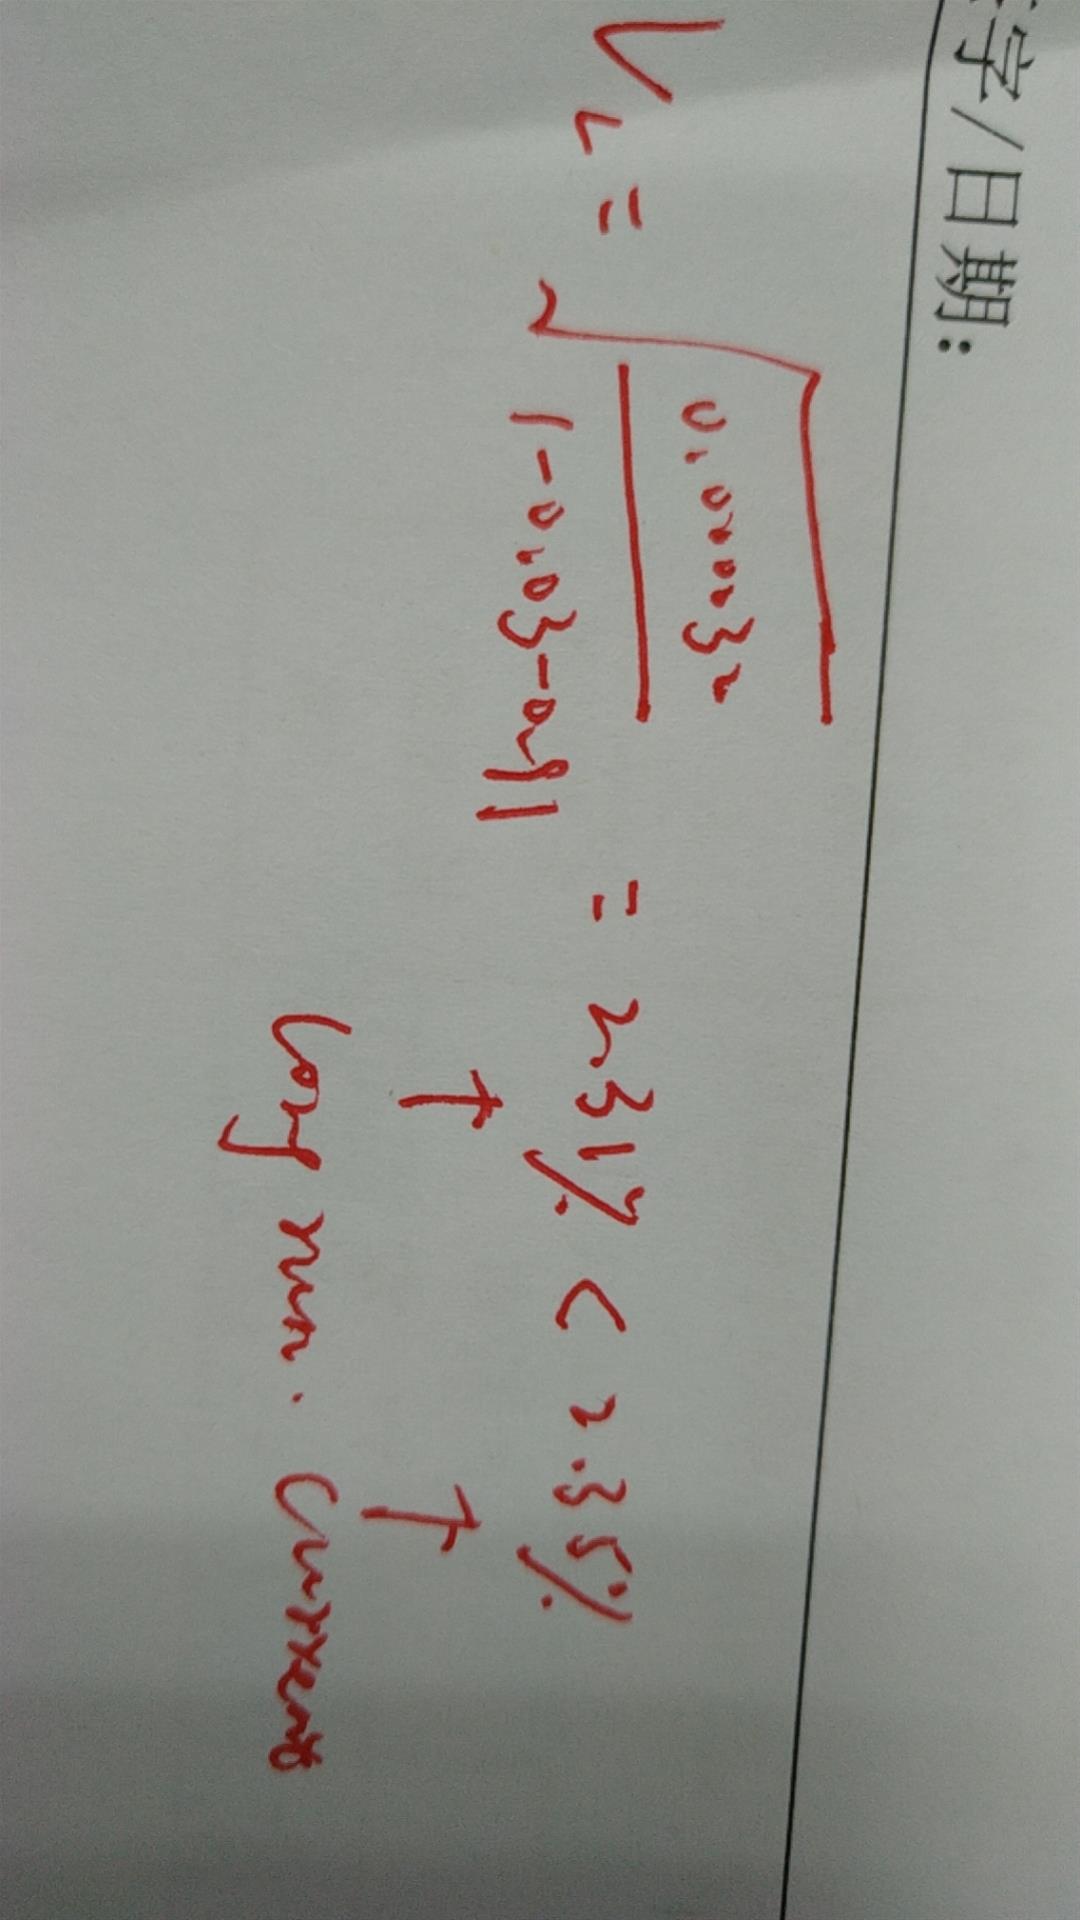 字/日期:
V_L = √(0.000032 / 1-0.03-0.91) = 2.31% < 2.35%
↑ ↑
long run. Current